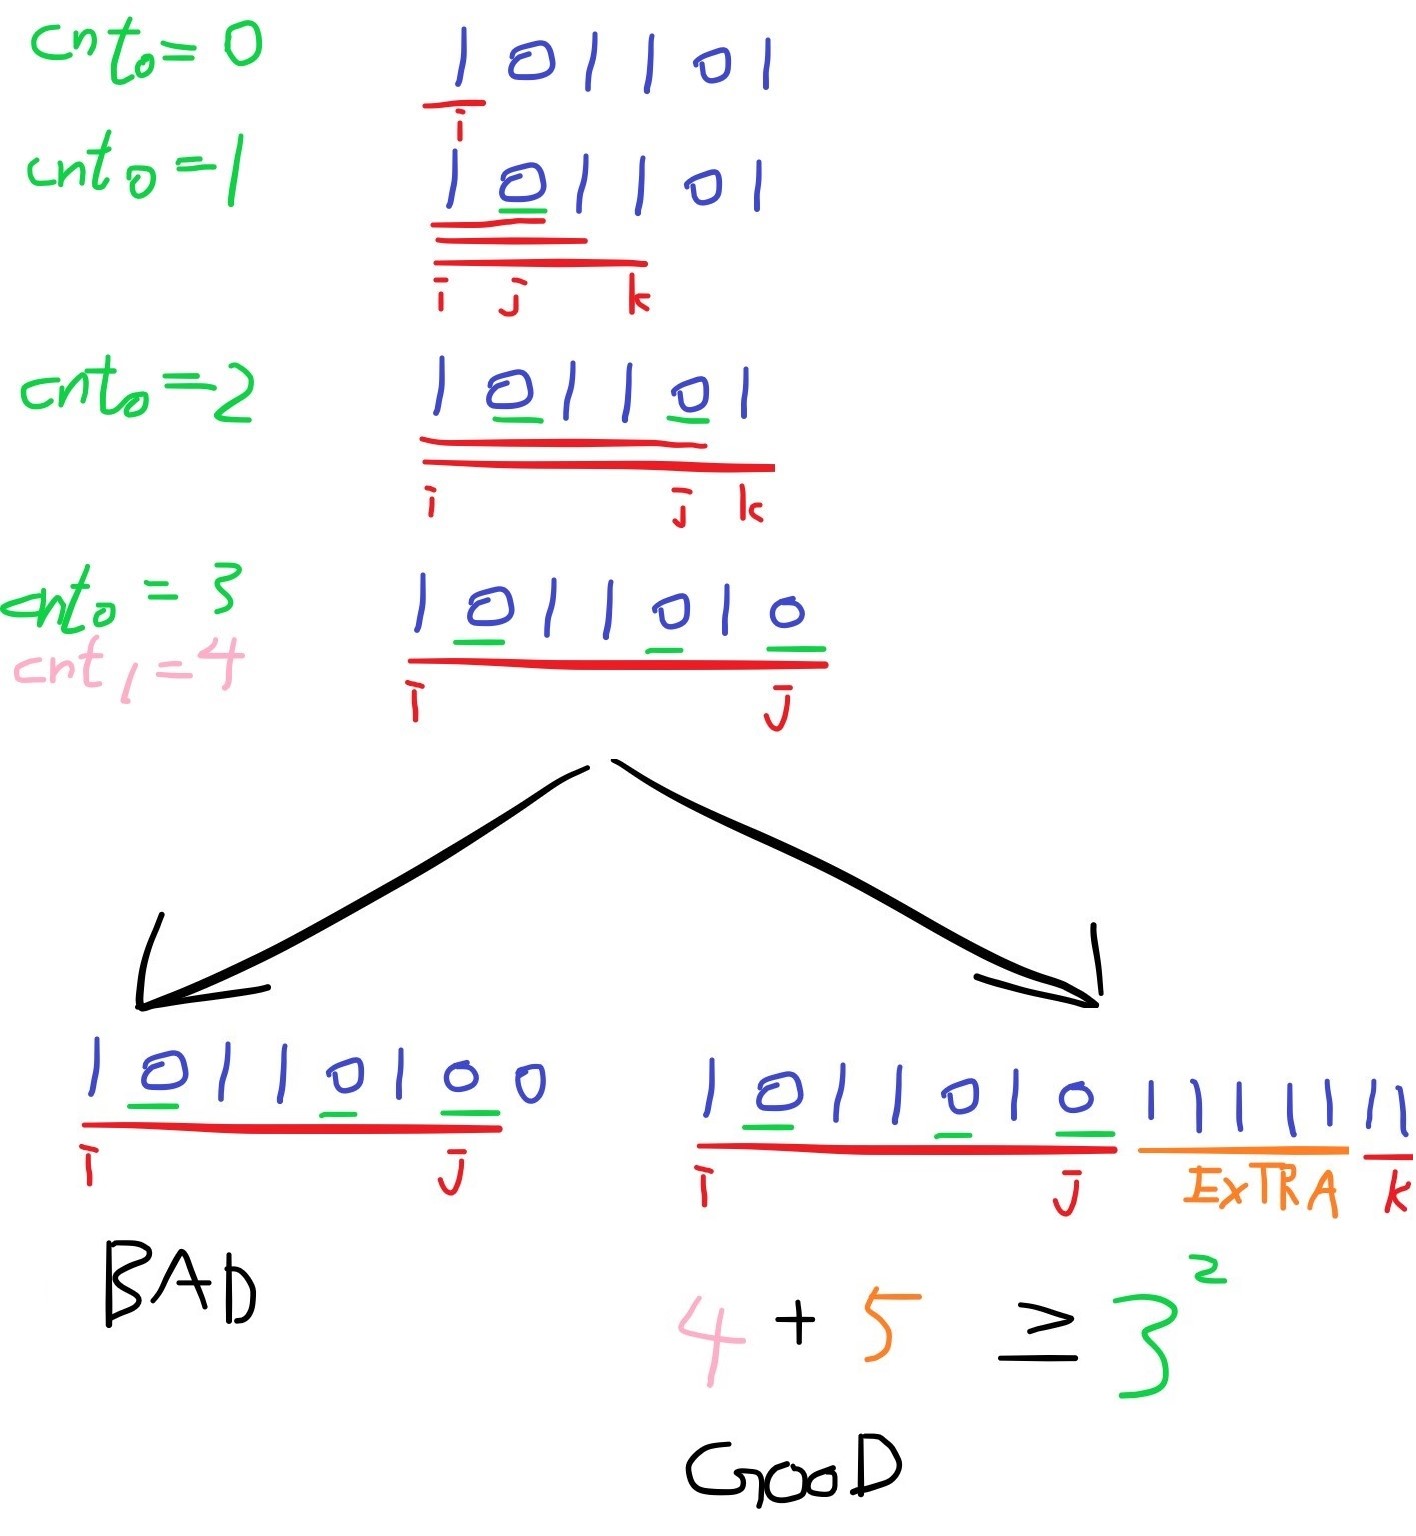 cnt₀ = 0 1 0 1 1 0 1
i
cnt₀ = 1 1 0 1 1 0 1
i j k
cnt₀ = 2 1 0 1 1 0 1
i j k
cnt₀ = 3 1 0 1 1 0 1 0
cnt₁ = 4
i j
1 0 1 1 0 1 0 0
i j
BAD
1 0 1 1 0 1 0 1 1 1 1 1 1 1
i j EXTRA k
4 + 5 ≥ 3²
GOOD